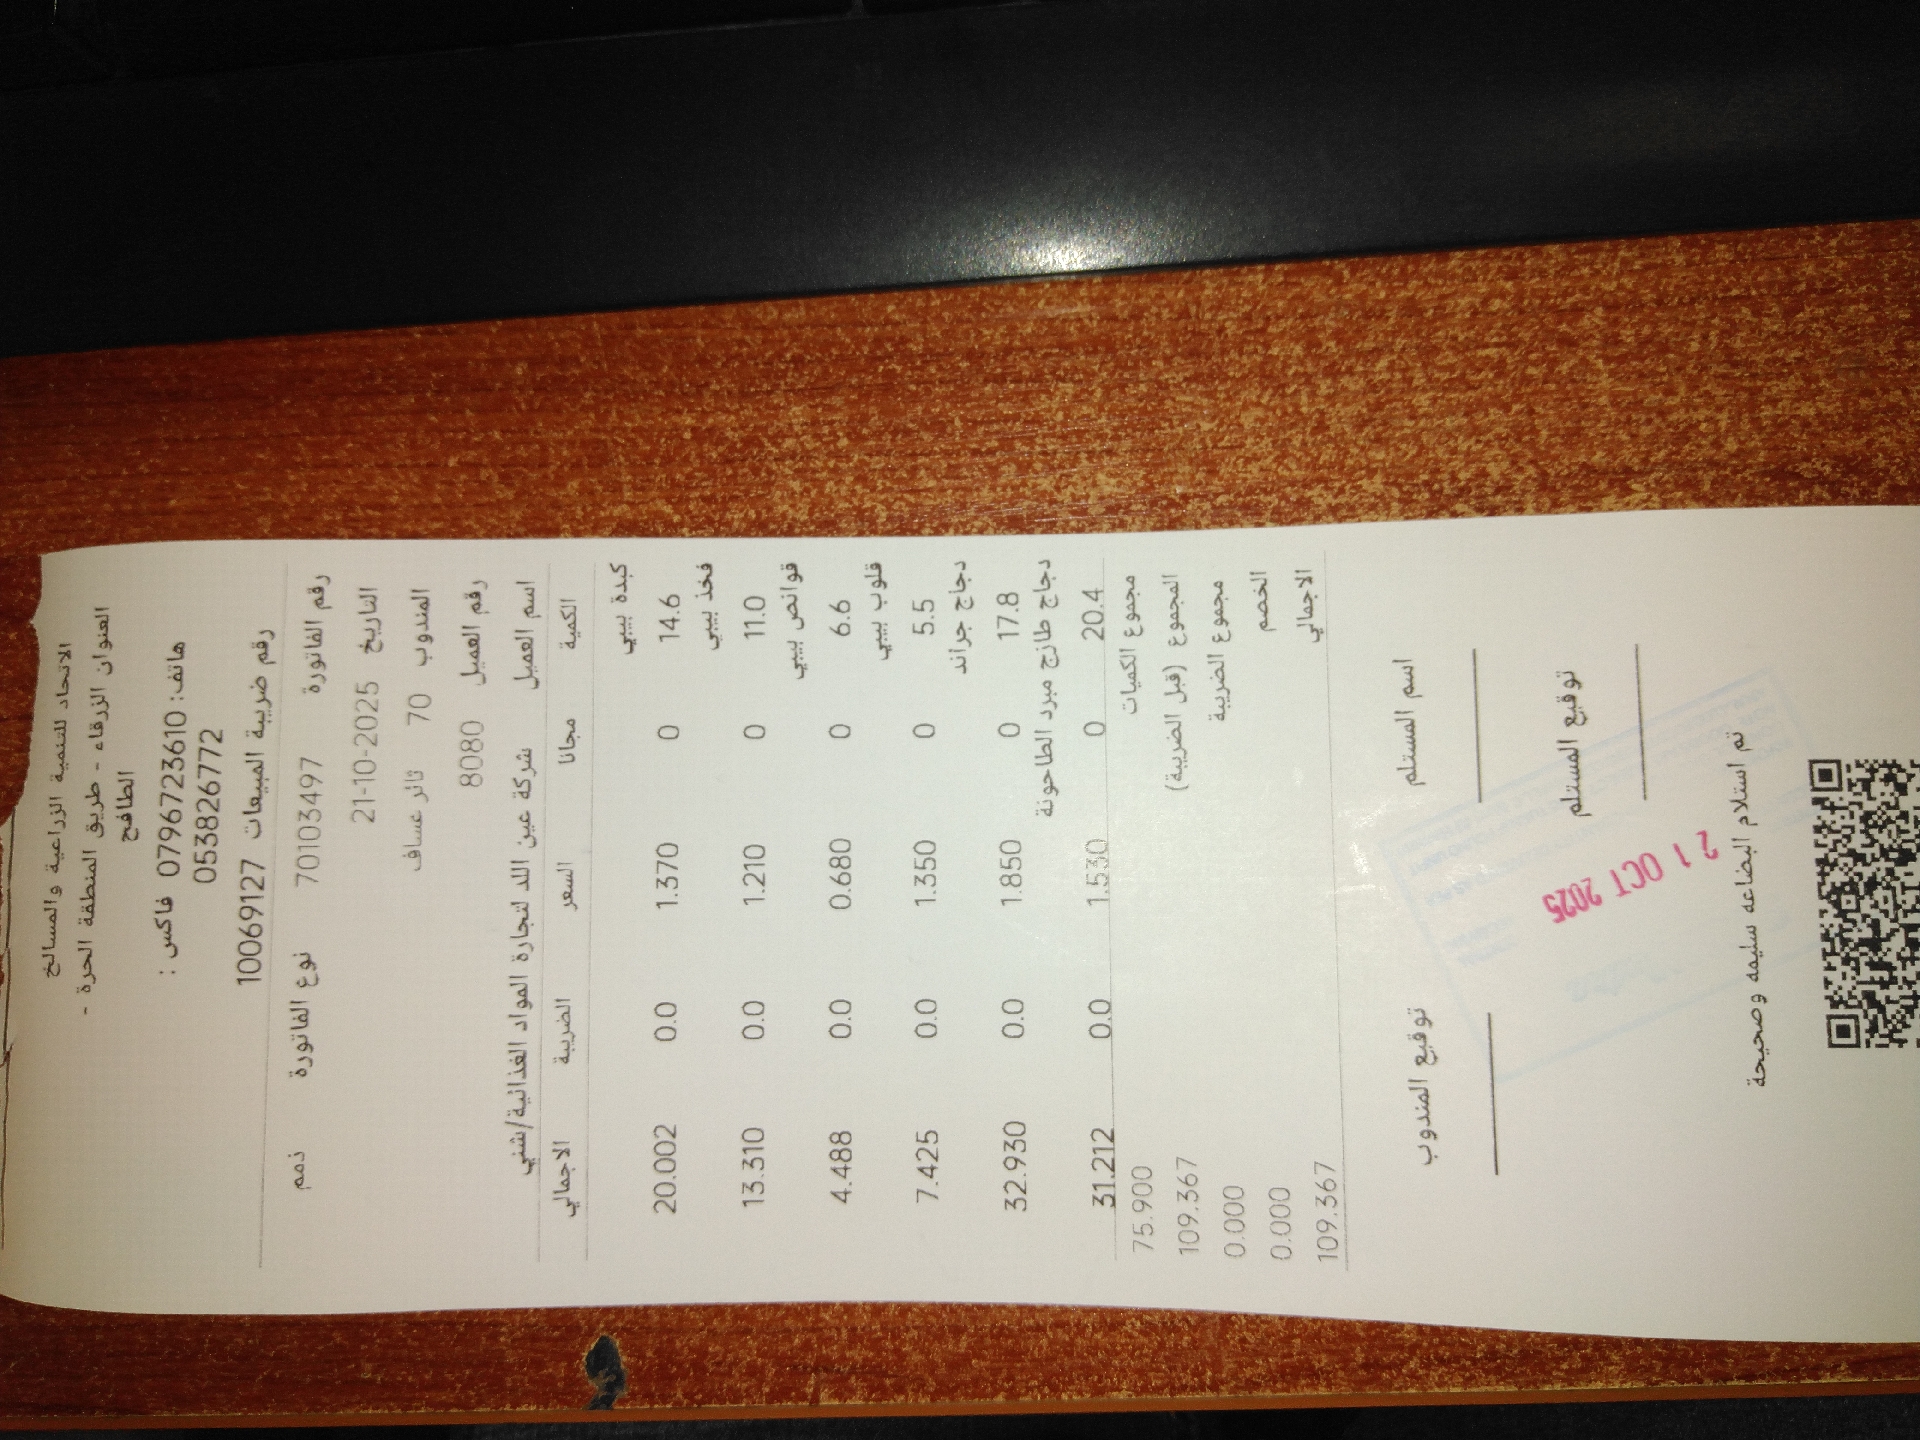 الاتحاد للتنمية الزراعية والمسالخ
العنوان الزرقاء - طريق المنطقة الحرة -
الطافح
هاتف: 0796723610 فاكس :
053826772
رقم ضريبة المبيعات 10069127
رقم الفاتورة 70103497 نوع الفاتورة ذمم
التاريخ 21-10-2025
المندوب 70 ثائر عساف
رقم العميل 8080
اسم العميل شركة عين اللد لتجارة المواد الغذائية/شني
الكمية مجانا السعر الضريبة الاجمالي
كبدة بيبي
14.6 0 1.370 0.0 20.002
فخذ بيبي
11.0 0 1.210 0.0 13.310
قوانص بيبي
6.6 0 0.680 0.0 4.488
قلوب بيبي
5.5 0 1.350 0.0 7.425
دجاج جراند
17.8 0 1.850 0.0 32.930
دجاج طازج مبرد الطاحونة
20.4 0 1.530 0.0 31.212
مجموع الكميات 75.900
المجموع (قبل الضريبة) 109.367
مجموع الضريبة 0.000
الخصم 0.000
الاجمالي 109.367
اسم المستلم توقيع المندوب
توقيع المستلم
21 OCT 2025
تم استلام البضاعه سليمه وصحيحة